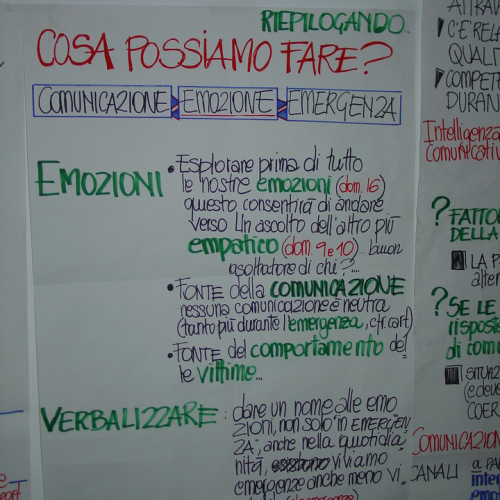 RIEPILOGANDO..
COSA POSSIAMO FARE?
COMUNICAZIONE EMOZIONE EMERGENZA
EMOZIONI • Esplorare prima di tutto
le nostre emozioni (dom. 16)
questo consentirà di andare
verso un ascolto dell'altro più
empatico (dom. 9 e 10) buon
ascoltatore di chi?...
• FONTE della COMUNICAZIONE
nessuna comunicazione è neutra
(tanto più durante l'emergenza, cfr. cart)
• FONTE del comportamento del
le vittime...
VERBALIZZARE: dare un nome alle emo
zioni, non solo in EMERGEN
ZA, anche nella quotidia
nità, viviamo
emergenze anche meno vi
ATTRAV
C'È REL
QUALI
COMPETE
DURAN
Intelligenza
Comunicativ
? FATTO
DELLA
LA P
alter
? SE LE
risposte
di comu
SITUAZ
(e deve
COER
COMUNICAZION
CANALI
a PA
inter
emo